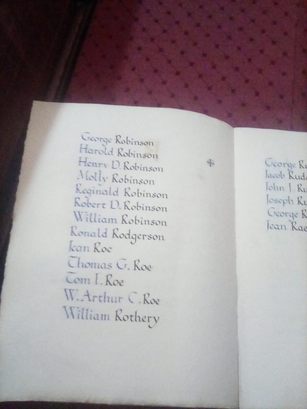 George Robinson
Harold Robinson
Henry D. Robinson
Molly Robinson
Reginald Robinson
Robert D. Robinson
William Robinson
Ronald Rodgerson
Jean Roe
Thomas G. Roe
Tom I. Roe
W. Arthur C. Roe
William Rothery
George
Jacob
John I.
Joseph
George
Jean